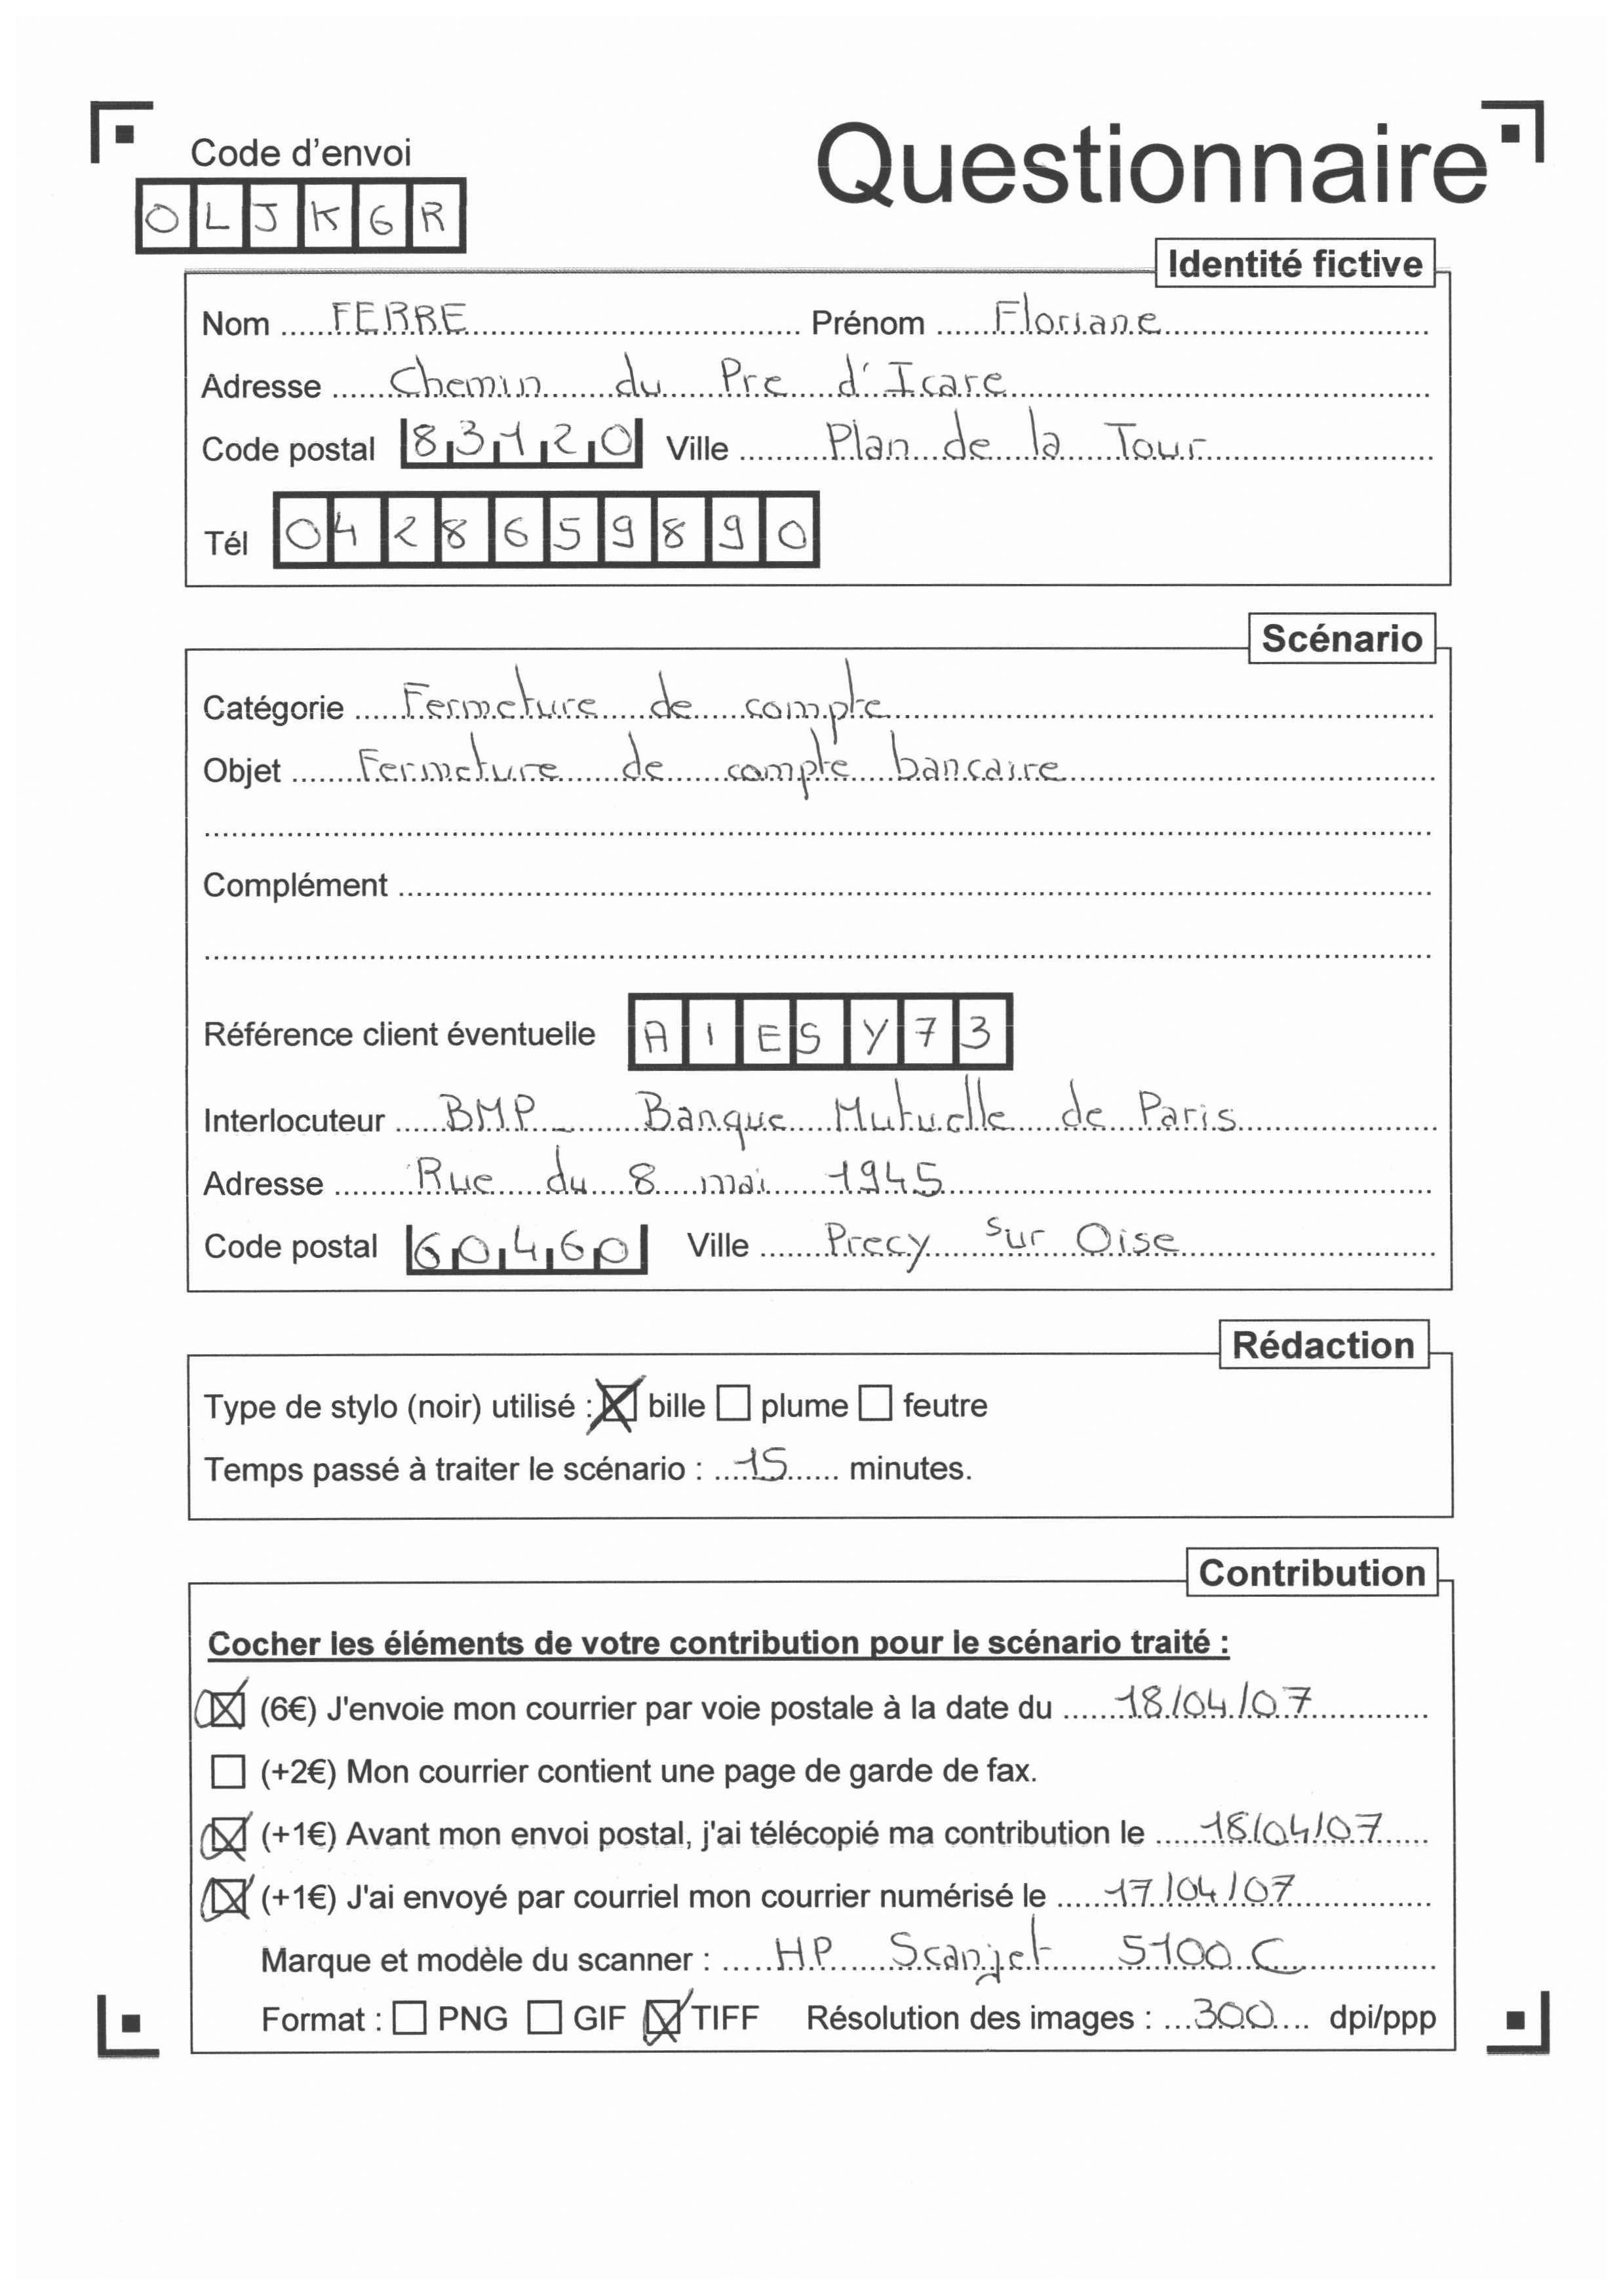 Code d'envoi
Questionnaire
OLJKGR
Identité fictive
Nom FERRE Prénom Floriane
Adresse Chemin du Pre d'Icare
Code postal 83120 Ville Plan de la Tour
Tél 0428659890
Scénario
Catégorie Fermeture de compte
Objet Fermeture de compte bancaire
Complément
Référence client éventuelle AIESY73
Interlocuteur BMP_ Banque Mutuelle de Paris
Adresse Rue du 8 mai 1945
Code postal 60460 Ville Precy sur Oise
Rédaction
Type de stylo (noir) utilisé : bille plume feutre
Temps passé à traiter le scénario : 15 minutes.
Contribution
Cocher les éléments de votre contribution pour le scénario traité :
(6€) J'envoie mon courrier par voie postale à la date du 18/04/07
(+2€) Mon courrier contient une page de garde de fax.
(+1€) Avant mon envoi postal, j'ai télécopié ma contribution le 18/04/07
(+1€) J'ai envoyé par courriel mon courrier numérisé le 17/04/07
Marque et modèle du scanner : HP Scanjet 5100 C
Format : PNG GIF TIFF Résolution des images : 300 dpi/ppp